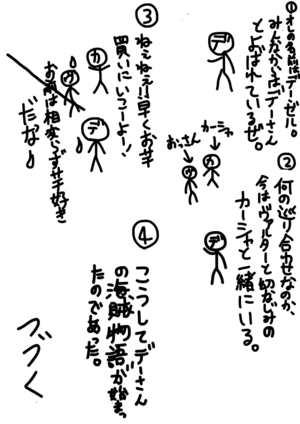 ①オレの名前はデービル。
みんなからはデーさん
とよばれているぜ。
デ
②
何の巡り合わせなのか、
今はヴァルターと幼なじみの
カーシャと一緒にいる。
カーシャ
おっさん
カ
デ
③
ねぇねぇ!!早くお芋
買いにいこーよー!
カ
デ
お前は相変らず芋好き
だな♪
④
こうしてデーさん
の海賊物語が始まっ
たのであった。
つづく